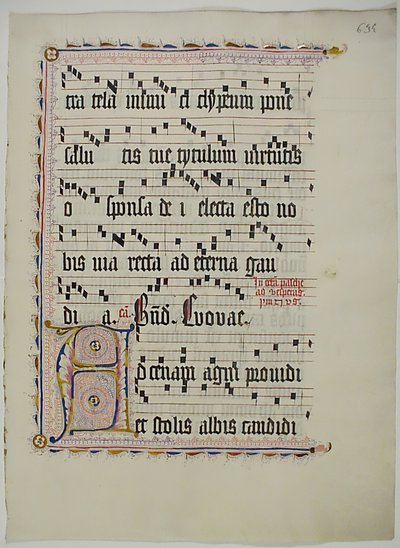 634
tra tela inimi ci clypeum pone
salu tis tue tytulum uirtutis
o sponsa de i electa esto no
bis uia recta ad eterna gau
di a. ca. Bñd. Evovae.
In octa pasche
ad vesperas
Ad cenam agni prouidi
et stolis albis candidi